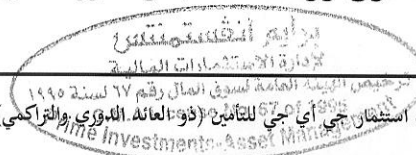 برايم انفستمنتس
لإدارة الاستثمارات المالية
ترخيص الهيئة العامة لسوق المال رقم ٦٧ لسنة ١٩٩٥
استثمار جي أي جي للتأمين (ذو العائد الدوري والتراكمي)
Prime Investments-Asset Management